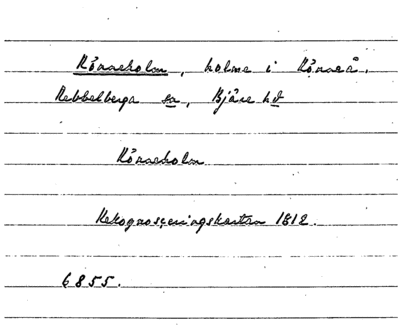 Rönneholm, holme i Rönneå,
Rebbelberga sn, Bjäre hd
Rönneholm
Rekognosceringskartan 1812.
6855.